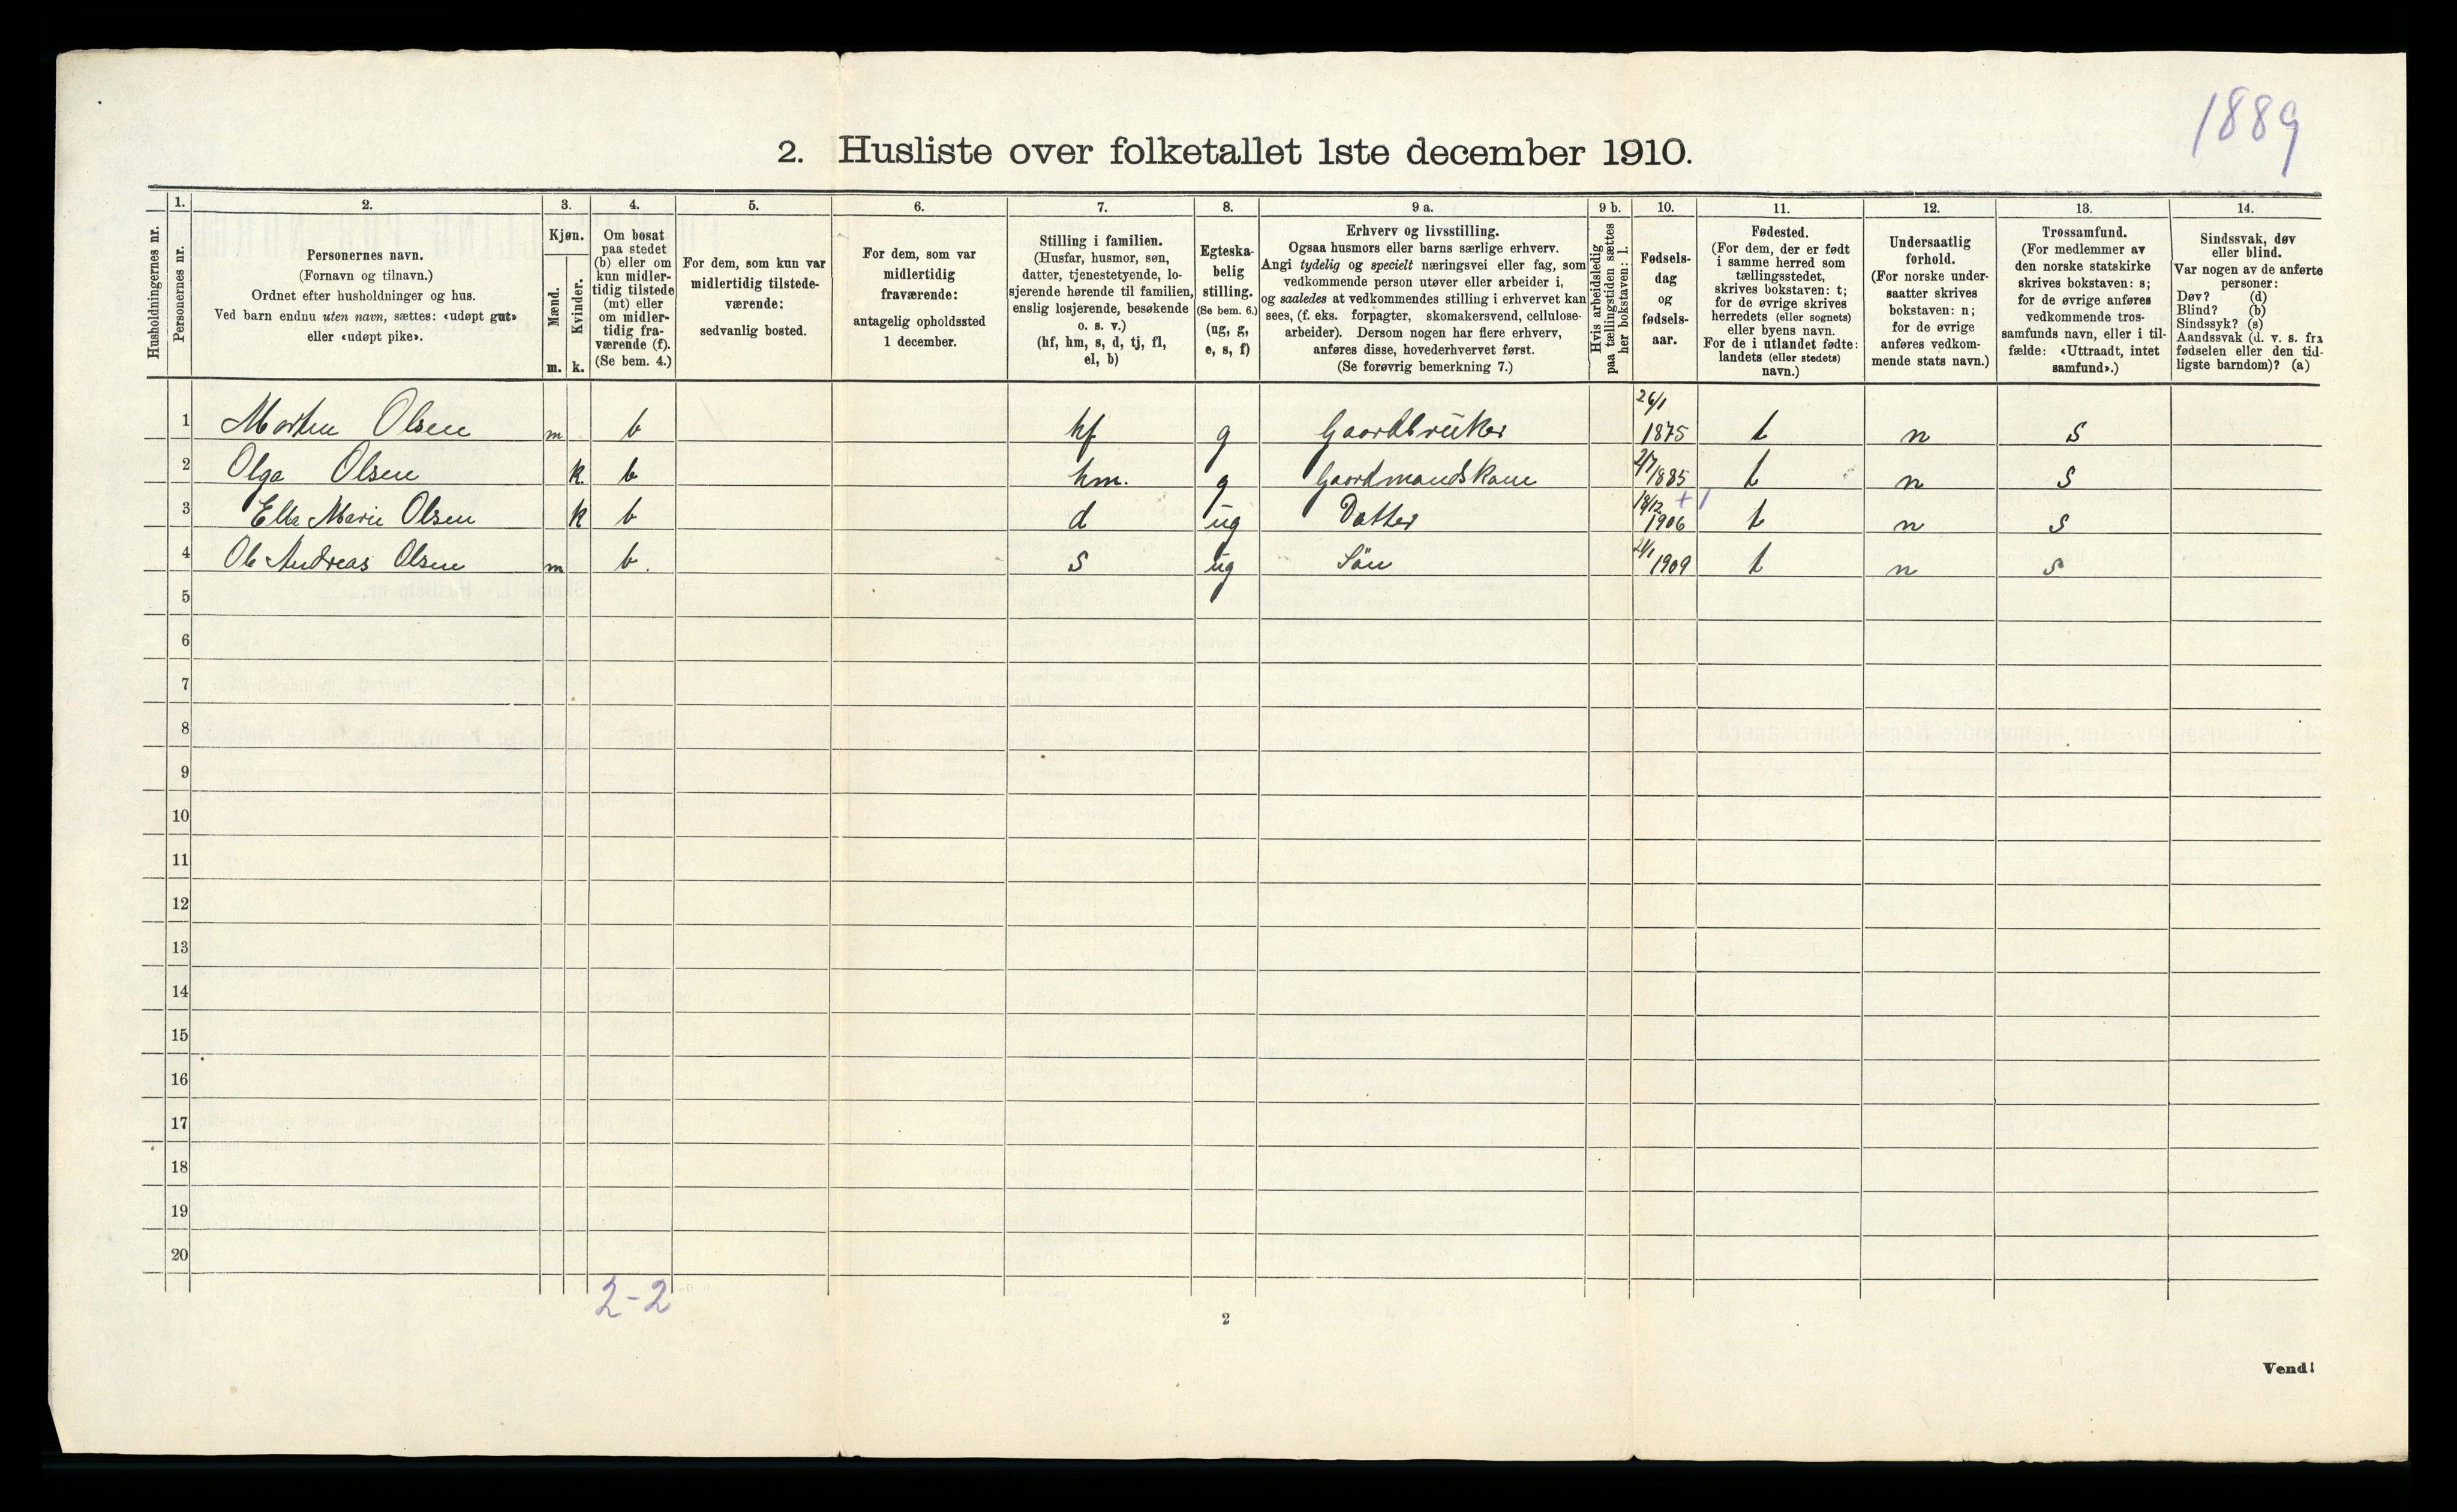 1889
2. Husliste over folketallet 1ste december 1910.
Husholdningernes nr.
1.
Personernes nr.
2.
Personernes navn.
(Fornavn og tilnavn.)
Ordnet efter husholdninger og hus.
Ved barn endnu uten navn, sættes: «udøpt gut»
eller «udøpt pike».
3.
Kjøn.
Mænd.
m.
Kvinder.
k.
4.
Om bosat
paa stedet
(b) eller om
kun midler-
tidig tilstede
(mt) eller
om midler-
tidig fra-
værende (f).
(Se bem. 4.)
5.
For dem, som kun var
midlertidig tilstede-
værende:
sedvanlig bosted.
6.
For dem, som var
midlertidig
fraværende:
antagelig opholdssted
1 december.
7.
Stilling i familien.
(Husfar, husmor, søn,
datter, tjenestetyende, lo-
sjerende hørende til familien,
enslig losjerende, besøkende
o. s. v.)
(hf, hm, s, d, tj, fl,
el, b)
8.
Egteska-
belig
stilling.
(Se bem. 6.)
(ug, g,
e, s, f)
9 a.
Erhverv og livsstilling.
Ogsaa husmors eller barns særlige erhverv.
Angi tydelig og specielt næringsvei eller fag, som
vedkommende person utøver eller arbeider i,
og saaledes at vedkommendes stilling i erhvervet kan
sees, (f. eks. forpagter, skomakersvend, cellulose-
arbeider). Dersom nogen har flere erhverv,
anføres disse, hovederhvervet først.
(Se forøvrig bemerkning 7.)
9 b.
Hvis arbeidsledig
paa tællingstiden sættes
her bokstaven: l.
10.
Fødsels-
dag
og
fødsels-
aar.
11.
Fødested.
(For dem, der er født
i samme herred som
tællingsstedet,
skrives bokstaven: t;
for de øvrige skrives
herredets (eller sognets)
eller byens navn.
For de i utlandet fødte:
landets (eller stedets)
navn.)
12.
Undersaatlig
forhold.
(For norske under-
saatter skrives
bokstaven: n;
for de øvrige
anføres vedkom-
mende stats navn.)
13.
Trossamfund.
(For medlemmer av
den norske statskirke
skrives bokstaven: s;
for de øvrige anføres
vedkommende tros-
samfunds navn, eller i til-
fælde: «Uttraadt, intet
samfund».)
14.
Sindssvak, døv
eller blind.
Var nogen av de anførte
personer:
Døv? (d)
Blind? (b)
Sindssyk? (s)
Aandssvak (d. v. s. fra
fødselen eller den tid-
ligste barndom)? (a)
1 Morten Olsen m b hf g Gaardbruker 26/1 1875 t n s
2 Olga Olsen k. b hm. g Gaardmandskone 2/7 1885 t n s
3 Ella Marie Olsen k b d ug Datter 18/12 1906 +1 t n s
4 Ole Andreas Olsen m b. s ug Søn 21/1 1909 t n s
5
6
7
8
9
10
11
12
13
14
15
16
17
18
19
20
2-2
2
Vend!